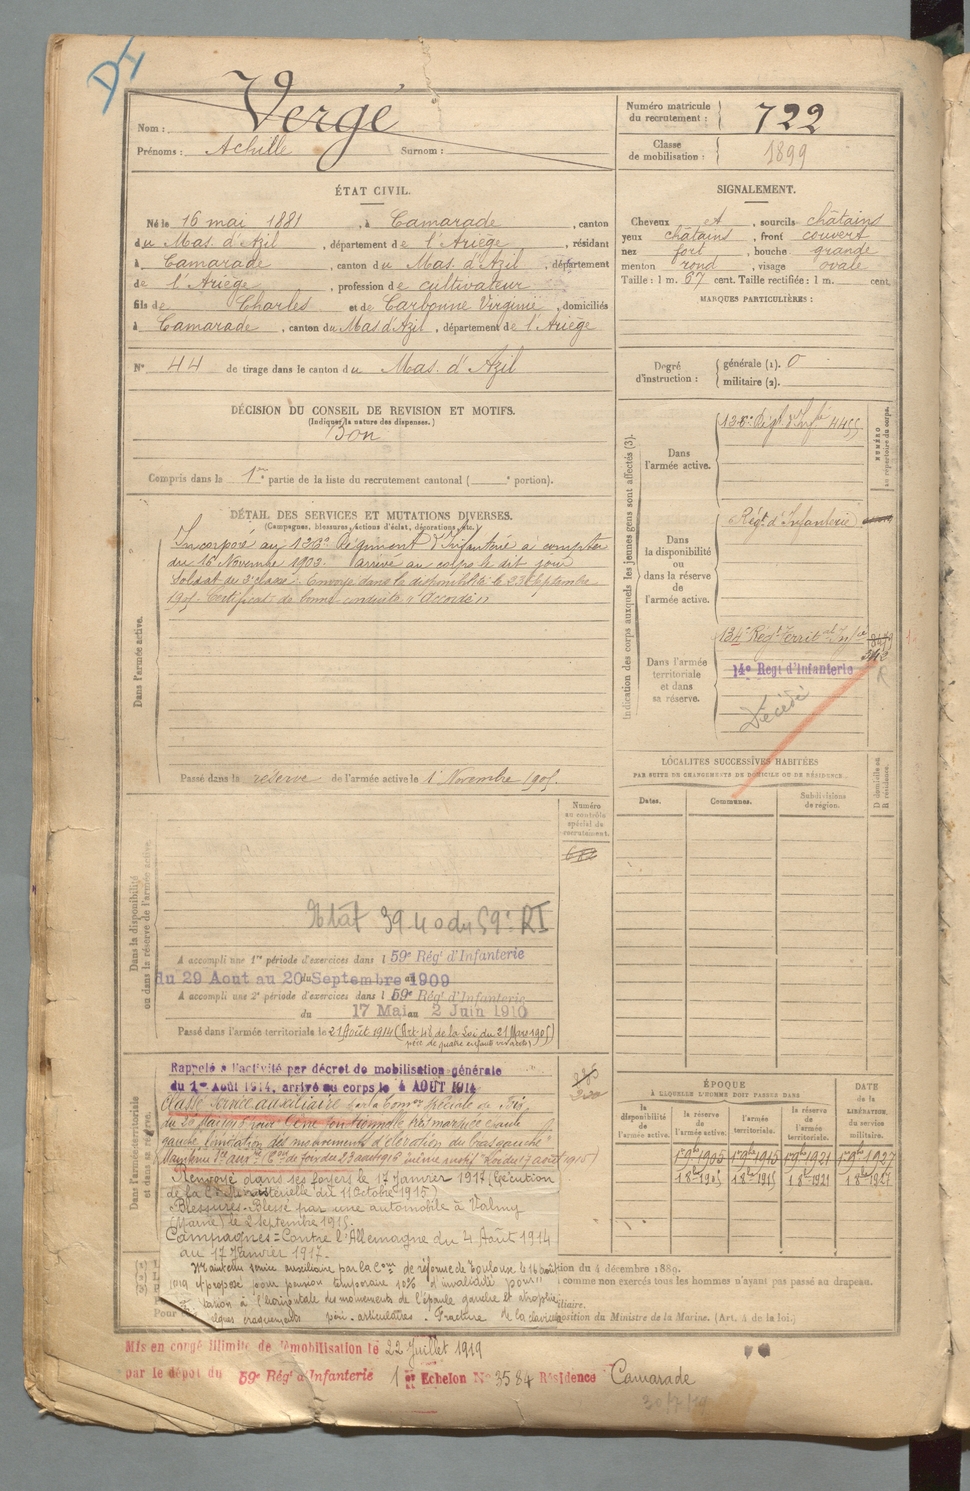 Nom : Vergé
Prénoms : Achille Surnom :
Numéro matricule du recrutement : 722
Classe de mobilisation : 1899
ÉTAT CIVIL.
Né le 16 mai 1881, à Camarade, canton
du Mas. d'Azil, département de l'Ariège, résidant
à Camarade, canton du Mas. d'Azil, département
de l'Ariège, profession de cultivateur
fils de Charles et de Carbonne Virginie, domiciliés
à Camarade, canton du Mas d'Azil, département de l'Ariège
N° 44 de tirage dans le canton du Mas. d'Azil
SIGNALEMENT.
Cheveux et, sourcils châtains
yeux châtains, front couvert
nez fort, bouche grande
menton rond, visage ovale
Taille : 1 m. 67 cent. Taille rectifiée : 1 m. cent.
MARQUES PARTICULIÈRES :
Degré d'instruction : générale (1). 0
militaire (2).
DÉCISION DU CONSEIL DE REVISION ET MOTIFS.
(Indiquer la nature des dispenses.)
Bon
Compris dans la 1re partie de la liste du recrutement cantonal ( e portion).
DÉTAIL DES SERVICES ET MUTATIONS DIVERSES.
(Campagnes, blessures, actions d'éclat, décorations, etc.)
Dans l'armée active.
Incorporé au Régiment d'Infanterie à compter
du 16 Novembre 1903. arrivé au corps le dit jour
Soldat de classe. Envoyé dans la disponibilité le 23 Septembre
1905. Certificat de bonne conduite "Accordé"
Passé dans la réserve de l'armée active le 1 Novembre 1905.
Indication des corps auxquels les jeunes gens sont affectés (3).
NUMÉRO au répertoire du corps.
Dans l'armée active.
Régt d'Infie 4455
Dans la disponibilité ou dans la réserve de l'armée active.
Régt d'Infanterie
Dans l'armée territoriale et dans sa réserve.
134e Régt Territal Infie
14e Régt d'Infanterie
Décédé
LOCALITÉS SUCCESSIVES HABITÉES
PAR SUITE DE CHANGEMENTS DE DOMICILE OU DE RÉSIDENCE.
Dates. Communes. Subdivisions de région.
D domicile ou R résidence.
Dans la disponibilité ou dans la réserve de l'armée active.
Numéro au contrôle spécial du recrutement.
682
39-40 du 59e RI
A accompli une 1re période d'exercices dans l 59e Régt d'Infanterie
du 29 Aout au 20 Septembre 1909
A accompli une 2e période d'exercices dans l 59e Régt d'Infanterie
du 17 Mai au 2 Juin 1910
Passé dans l'armée territoriale le 21 Août 1914 (Art. 48 de la Loi du 21 Mars 1905)
père de quatre enfants vivants)
Dans l'armée territoriale et dans sa réserve.
Rappelé à l'activité par décret de mobilisation générale
du 1er Août 1914, arrivé au corps le 4 AOUT 1914
Classé Service auxiliaire par la Comon Spéciale de Foix
gauche, limitation des mouvements d'élévation du bras gauche"
Maintenu Loi du 17 août 1915)
Renvoyé dans ses foyers le 17 Janvier 1917 (Exécution
de la C. Ministérielle du 11 Octobre 1915)
Blessures. Blessé par une automobile à Valmy
(Marne) le 2 Septembre 1915.
Campagnes = Contre l'Allemagne du 4 Août 1914
au 17 Janvier 1917.
Maintenu service auxiliaire par la Com de réforme de Toulouse le
1919 et proposé pour pension temporaire 10% d'invalidité pour
à l'horizontale des mouvements de l'épaule gauche et atrophie
craquements péri-articulaires. Fracture de la clavicule
ÉPOQUE
À LAQUELLE L'HOMME DOIT PASSER DANS
la disponibilité de l'armée active.
la réserve de l'armée active.
l'armée territoriale.
la réserve de l'armée territoriale.
DATE de la LIBÉRATION du service militaire.
1 9bre 1905 1 9bre 1915 1 9bre 1921 1 9bre 1927
tion du 4 décembre 1889.
comme non exercés tous les hommes n'ayant pas passé au drapeau.
iliaire.
position du Ministre de la Marine. (Art. 4 de la loi.)
Mis en congé illimité de démobilisation le 22 Juillet 1919
par le dépôt du 59e Régt d'Infanterie 1er Echelon N° 3584 Résidence Camarade